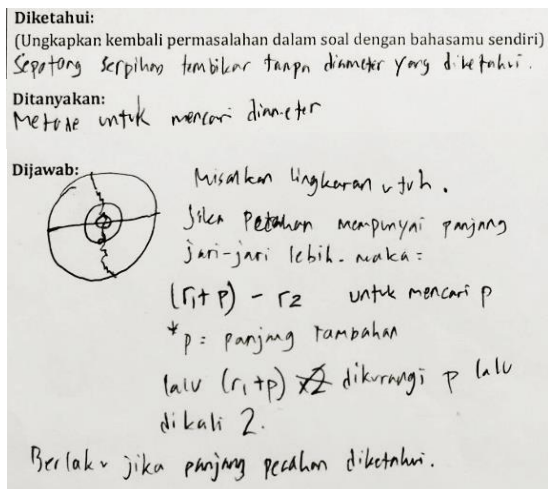 Diketahui:
(Ungkapkan kembali permasalahan dalam soal dengan bahasamu sendiri)
Sepotong serpihan tembikar tanpa diameter yang diketahui.
Ditanyakan:
Metode untuk mencari diameter
Dijawab:
Misalkan lingkaran utuh.
Jika Petahan mempunyai panjang
jari-jari lebih. maka:
(r₁ + p) - r₂ untuk mencari p
* p = panjang tambahan
lalu (r₁ + p) dikurangi p lalu
dikali 2.
Berlaku jika panjang pecahan diketahui.